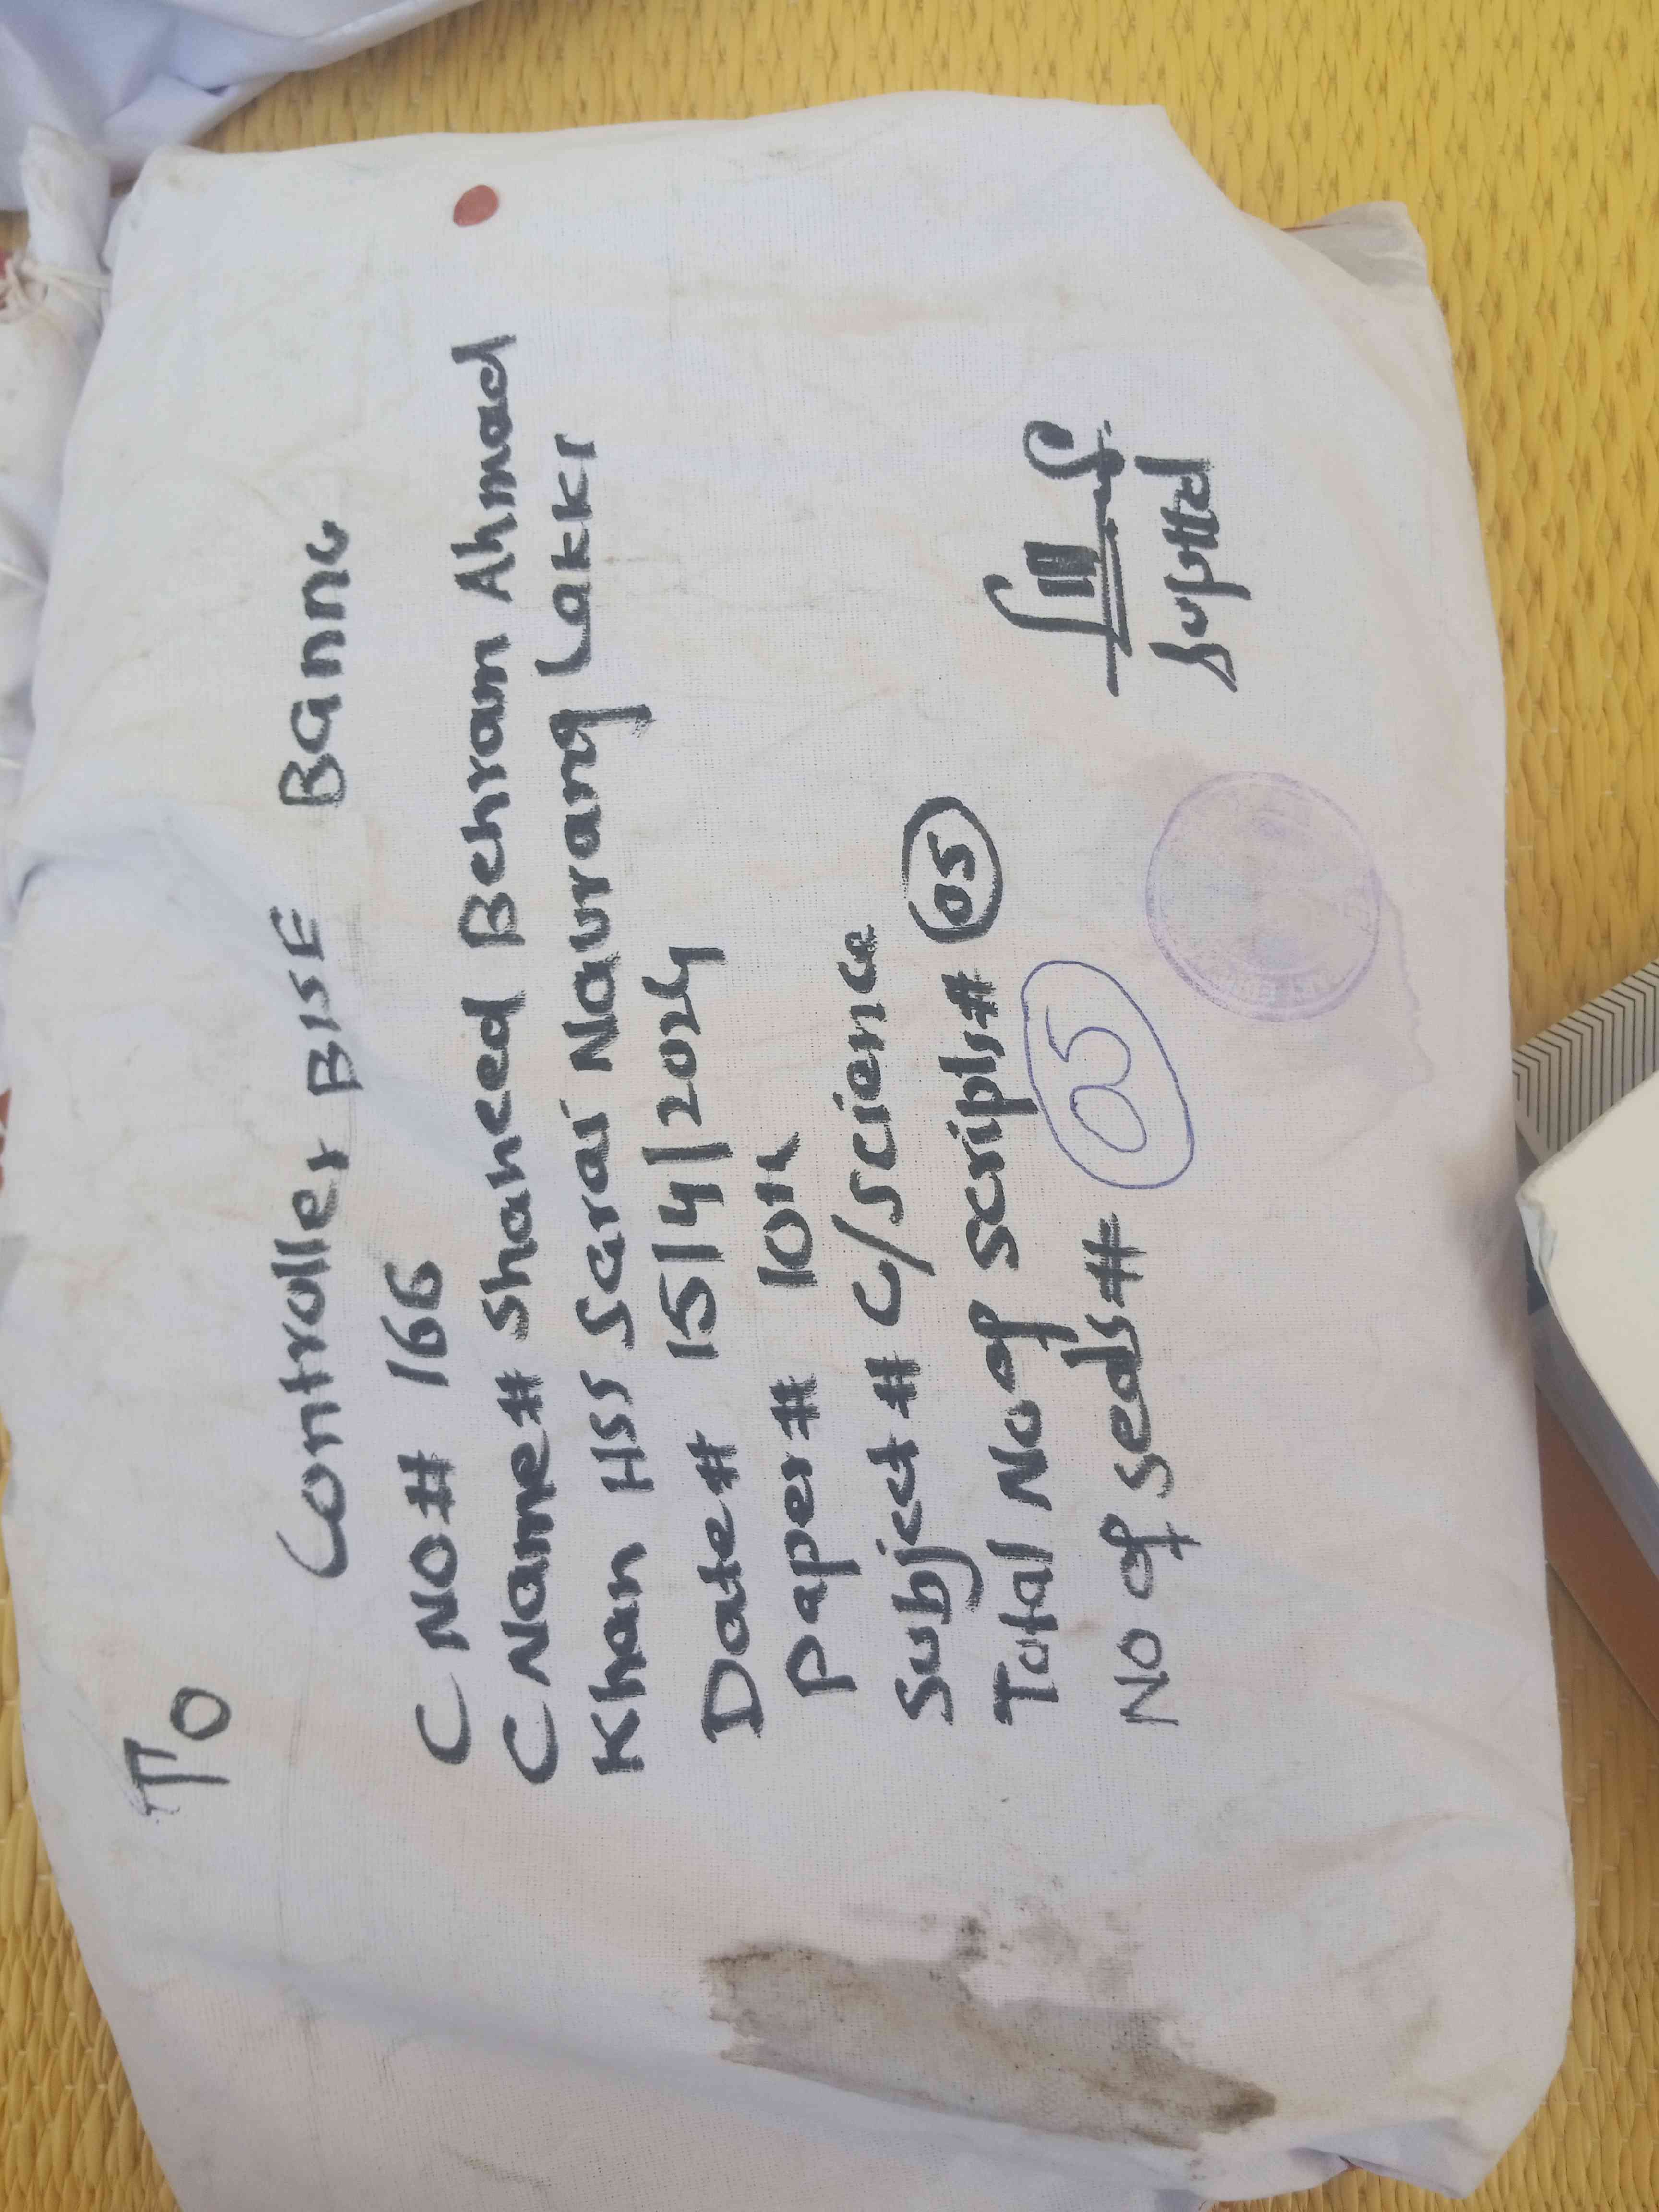 To
Controller BISE Bannu
C NO# 166
C Name# Shaheed Behram Ahmad
Khan HSS Serai Naurang Lakki
Date# 15/4/2024
Paper# 10th
Subject# C/Science
Total No of Scripts# 05
No of Seals# 05
Suptd